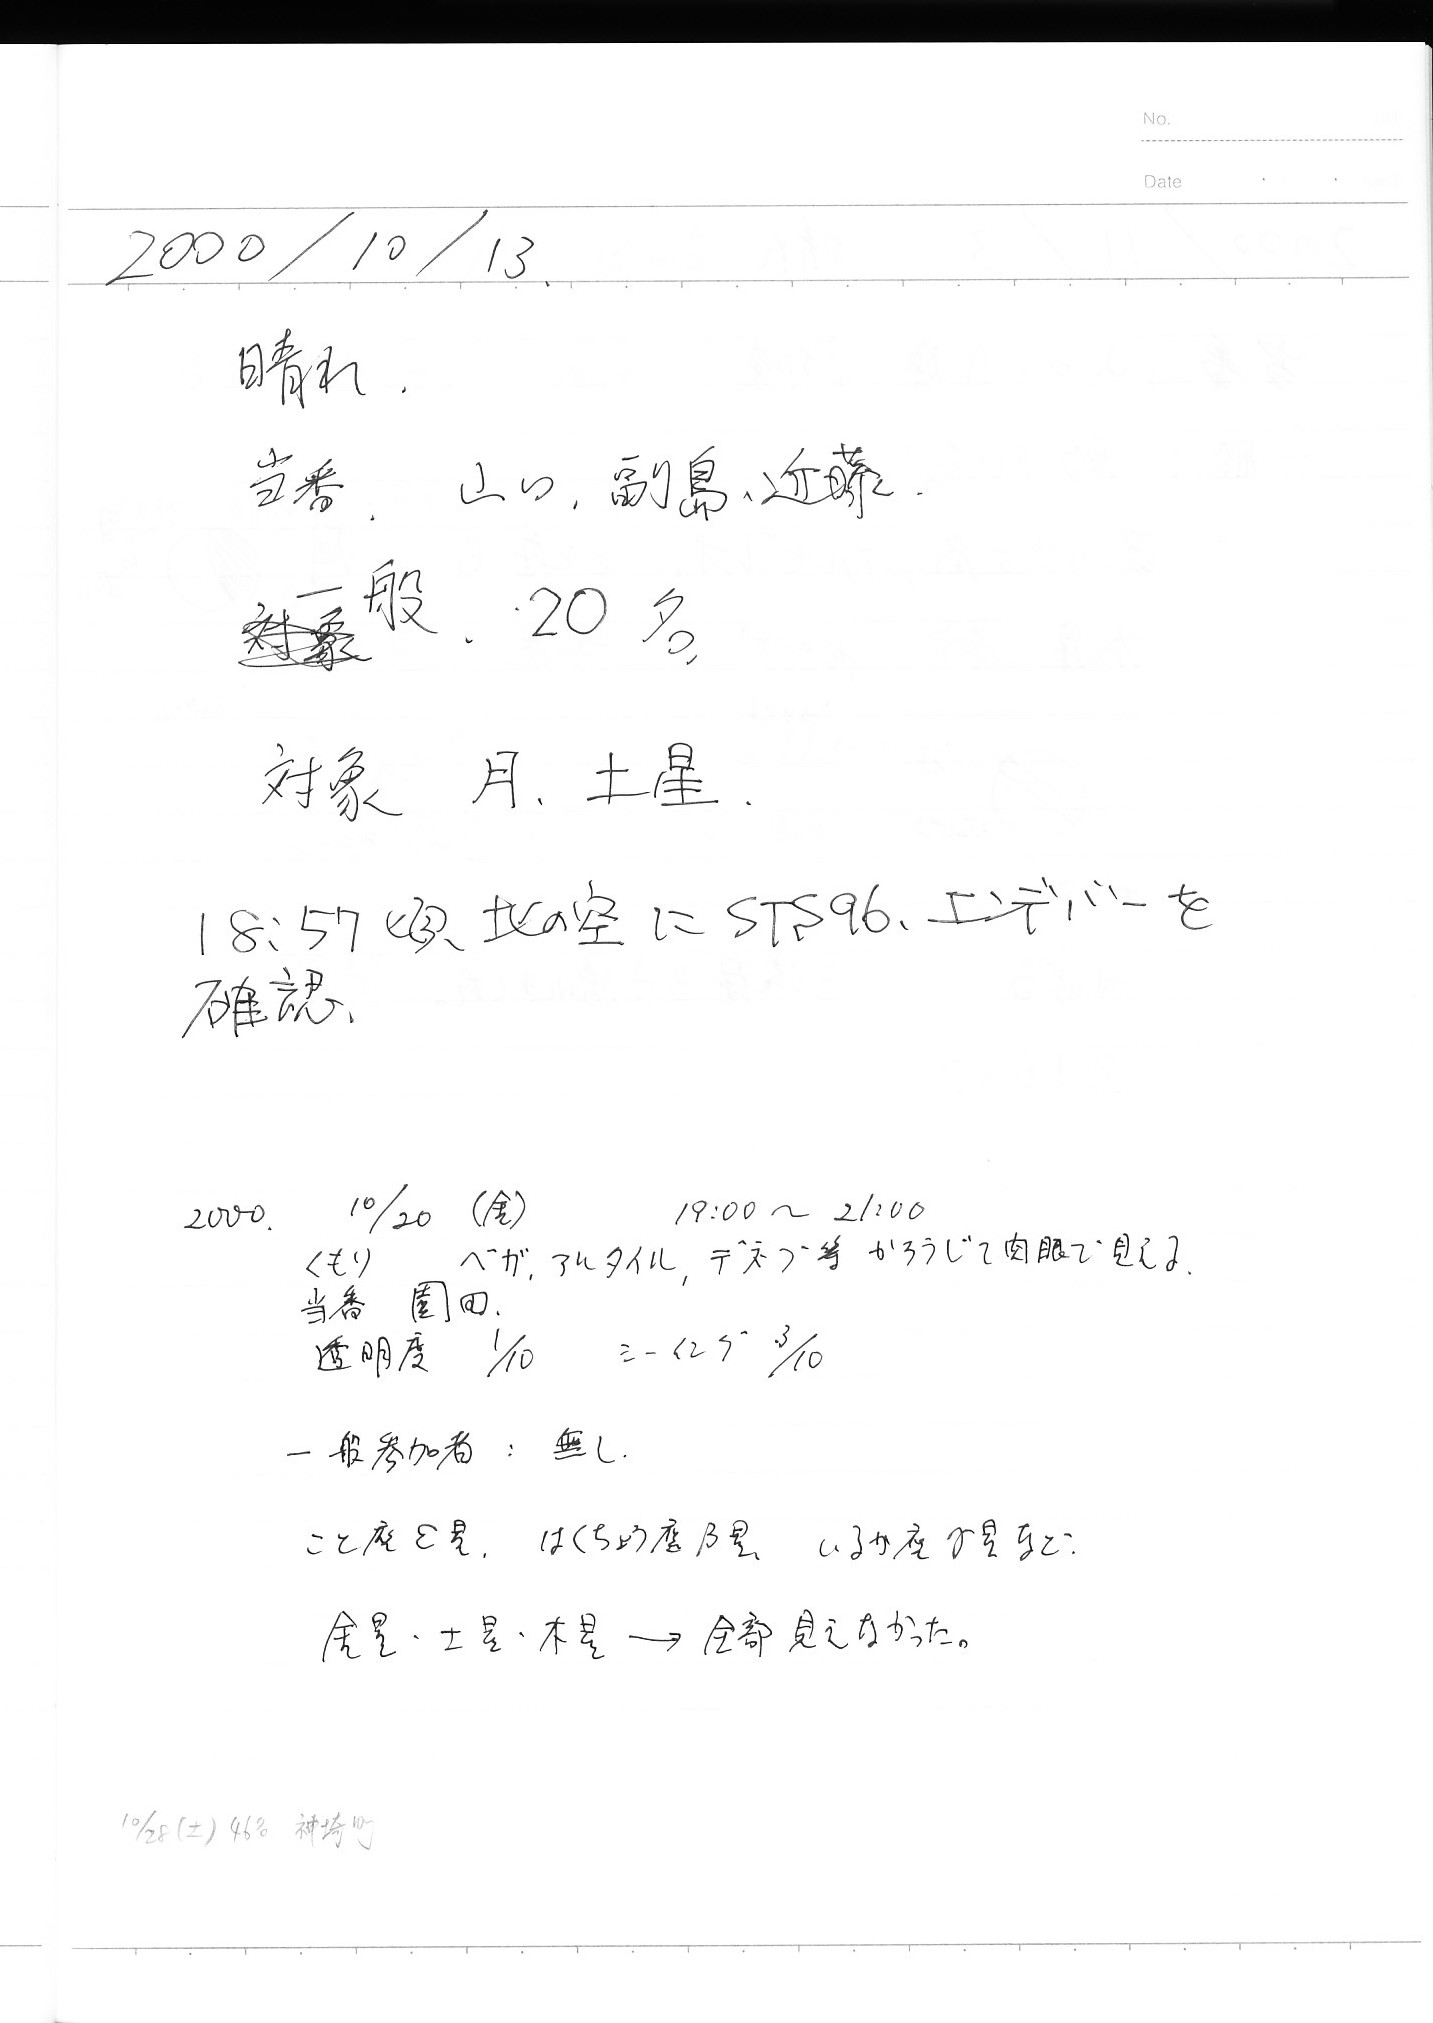 No.
Date
2000/10/13.
晴れ.
当番. 山口, 副島、近藤.
一般. 20名.
対象 月、土星.
18:57頃、北の空にSTS96、エンデバーを
確認、
2000. 10/20 (金) 19:00〜21:00
くもり ベガ, アルタイル, デネブ等 かろうじて肉眼で見える.
当番 園田.
透明度 1/10 シーイング 3/10
一般参加者: 無し.
こと座ε星. はくちょう座β星、 いるか座γ星など.
金星・土星・木星→全部見えなかった。
10/28(土) 46名 神埼町